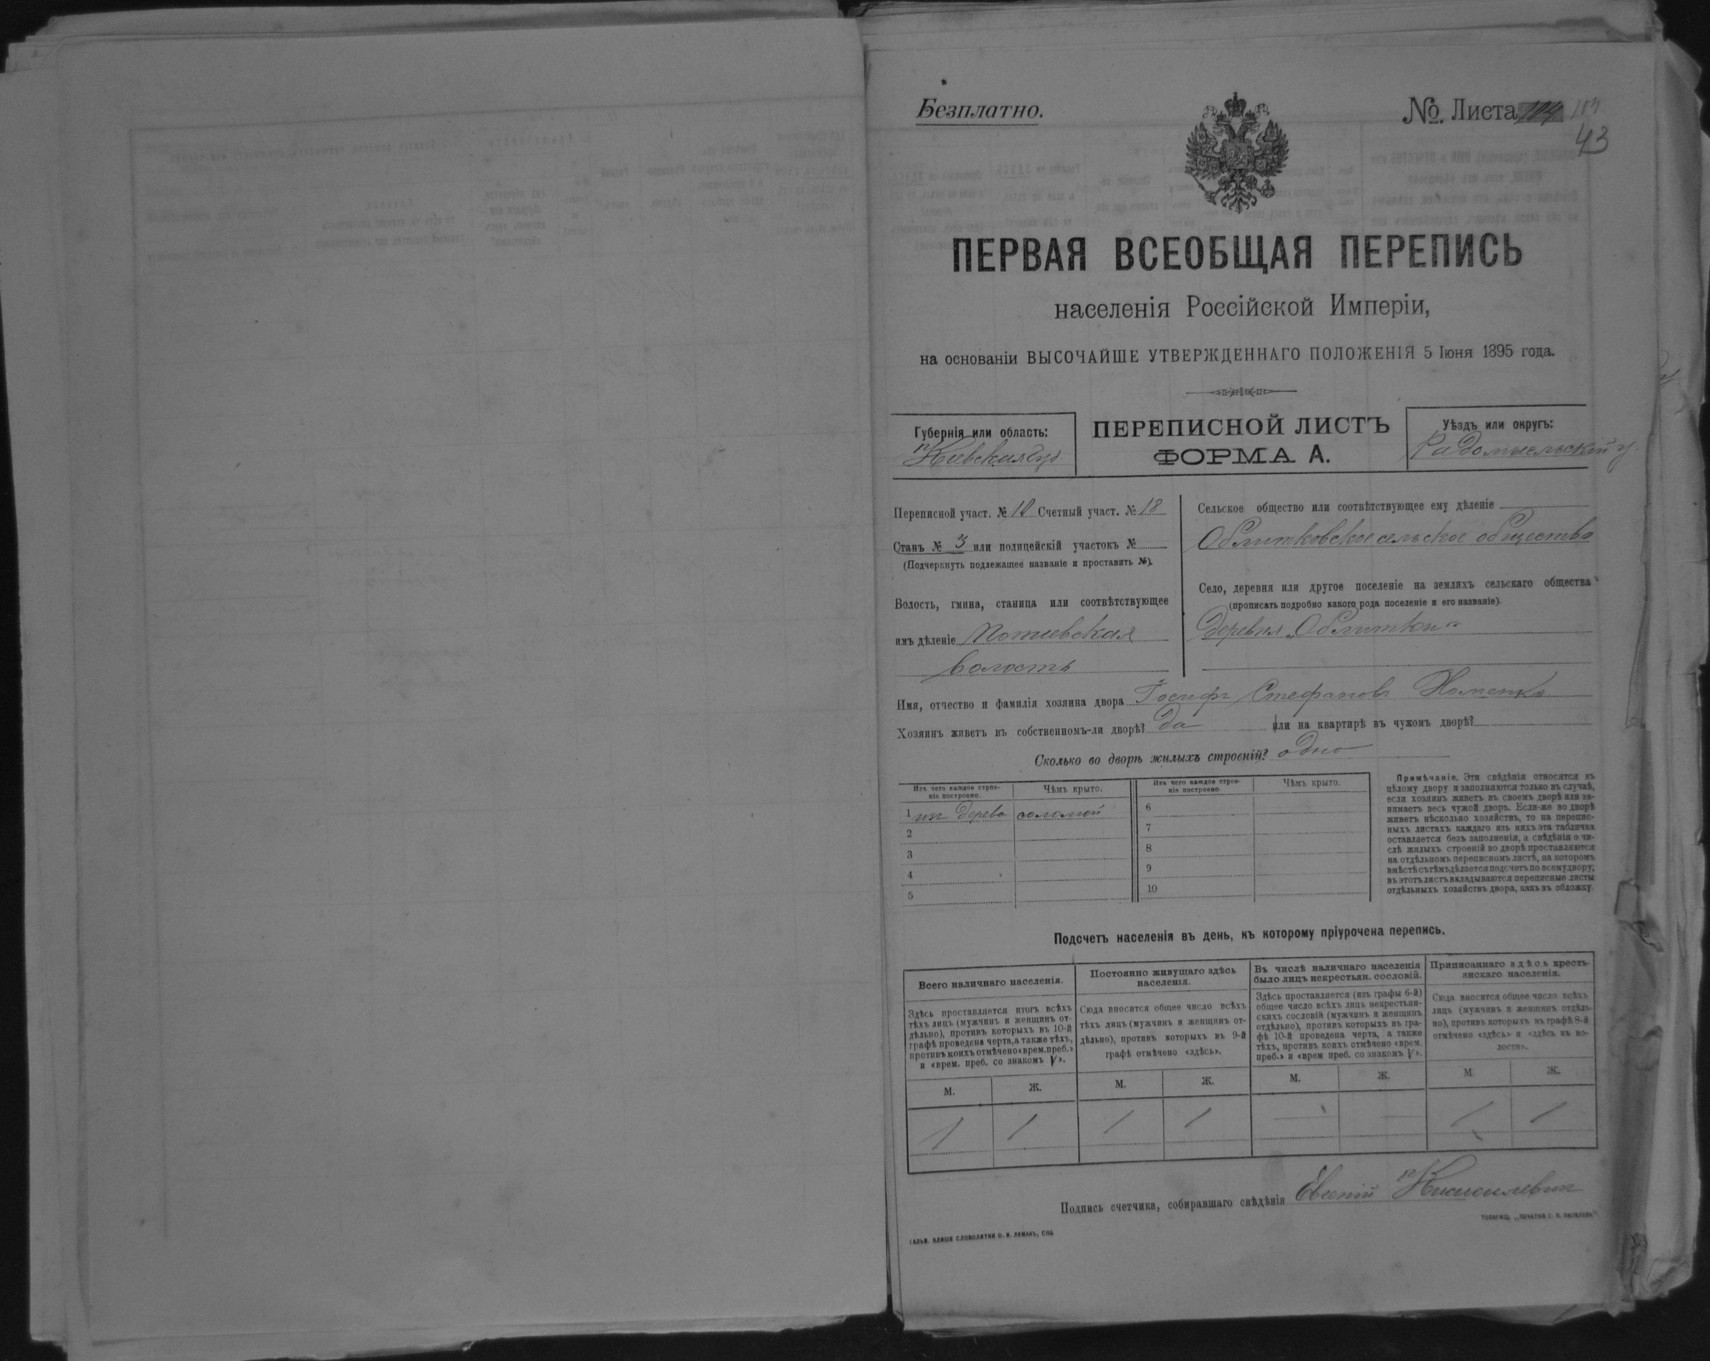 Безплатно.
№. Листа 103
43
ПЕРВАЯ ВСЕОБЩАЯ ПЕРЕПИСЬ
населенія Россійской Имперіи,
на основаніи ВЫСОЧАЙШЕ УТВЕРЖДЕННАГО ПОЛОЖЕНІЯ 5 Іюня 1895 года.
Губернія или область:
Кіевская губ
ПЕРЕПИСНОЙ ЛИСТЪ
ФОРМА А.
Уѣздъ или округъ:
Радомысльскій у.
Переписной участ. № 10 Счетный участ. № 18
Станъ № 3 или полицейскій участокъ №
(Подчеркнуть подлежащее названіе и проставить №).
Волость, гмина, станица или соотвѣтствующее
имъ дѣленіе Потіевская
волость
Сельское общество или соотвѣтствующее ему дѣленіе
Облитковское сельское общество
Село, деревня или другое поселеніе на земляхъ сельскаго общества
(прописать подробно какого рода поселеніе и его названіе).
деревня „Облитки“
Имя, отчество и фамилія хозяина двора Іосифъ Стефановъ
Хозяинъ живетъ въ собственномъ-ли дворѣ? да или на квартирѣ въ чужомъ дворѣ?
Сколько во дворѣ жилыхъ строеній? одно
Изъ чего каждое строеніе построено.
Чѣмъ крыто.
Изъ чего каждое строеніе построено.
Чѣмъ крыто.
1 изъ дерева соломой
2
3
4
5
6
7
8
9
10
Примѣчаніе. Эти свѣдѣнія относятся къ
цѣлому двору и заполняются только въ случаѣ,
если хозяинъ живетъ въ своемъ дворѣ или за-
нимаетъ весь чужой дворъ. Если-же во дворѣ
живетъ нѣсколько хозяйствъ, то на перепис-
ныхъ листахъ каждаго изъ нихъ эта табличка
оставляется безъ заполненія, а свѣдѣнія о чи-
слѣ жилыхъ строеній во дворѣ проставляются
на отдѣльномъ переписномъ листѣ, на которомъ
вмѣстѣ съ тѣмъ дѣлается подсчетъ по всему двору;
въ этотъ листъ вкладываются переписные листы
отдѣльныхъ хозяйствъ двора, какъ въ обложку.
Подсчетъ населенія въ день, къ которому пріурочена перепись.
Всего наличнаго населенія.
Здѣсь проставляется итогъ всѣхъ
тѣхъ лицъ (мужчинъ и женщинъ от-
дѣльно), противъ которыхъ въ 10-й
графѣ проведена черта, а также тѣхъ,
противъ коихъ отмѣчено «врем. преб.»
и «врем. преб. со знакомъ V».
М. Ж.
1 1
Постоянно живущаго здѣсь
населенія.
Сюда вносится общее число всѣхъ
тѣхъ лицъ (мужчинъ и женщинъ от-
дѣльно), противъ которыхъ въ 9-й
графѣ отмѣчено «здѣсь».
М. Ж.
1 1
Въ числѣ наличнаго населенія
было лицъ некрестьян. сословій.
Здѣсь проставляется (изъ графы 6-й)
общее число всѣхъ лицъ некрестьян-
скихъ сословій (мужчинъ и женщинъ
отдѣльно), противъ которыхъ въ гра-
фѣ 10-й проведена черта, а также
тѣхъ, противъ коихъ отмѣчено «врем.
преб.» и «врем преб. со знакомъ V».
М. Ж.
Приписаннаго здѣсь кресть-
янскаго населенія.
Сюда вносится общее число всѣхъ
лицъ (мужчинъ и женщинъ отдѣль-
но), противъ которыхъ въ графѣ 8-й
отмѣчено «здѣсь» и «здѣсь въ во-
лости».
М. Ж.
1 1
Подпись счетчика, собиравшаго свѣдѣнія Евгеній
ГАЛЬВ. КЛИШЕ СЛОВОЛИТНИ О. И. ЛЕМАНЪ, СПБ
ТОВАРИЩ. „ПЕЧАТНЯ С. П. ЯКОВЛЕВА“